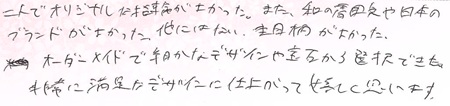 二人でオリジナルな指輪がよかった。また、和の雰囲気や日本の
ブランドがよかった。他にはない、木目柄がよかった。
オーダーメイドで細かなデザインや宝石から選択できた
非常に満足なデザインに仕上がって嬉しく思います。